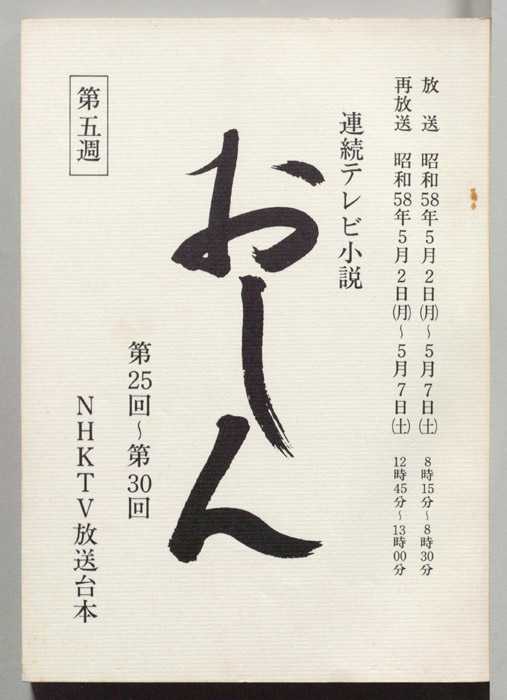 放送 昭和58年5月2日(月)〜5月7日(土) 8時15分〜8時30分
再放送 昭和58年5月2日(月)〜5月7日(土) 12時45分〜13時00分
連続テレビ小説
おしん
第25回〜第30回
NHKTV放送台本
第五週